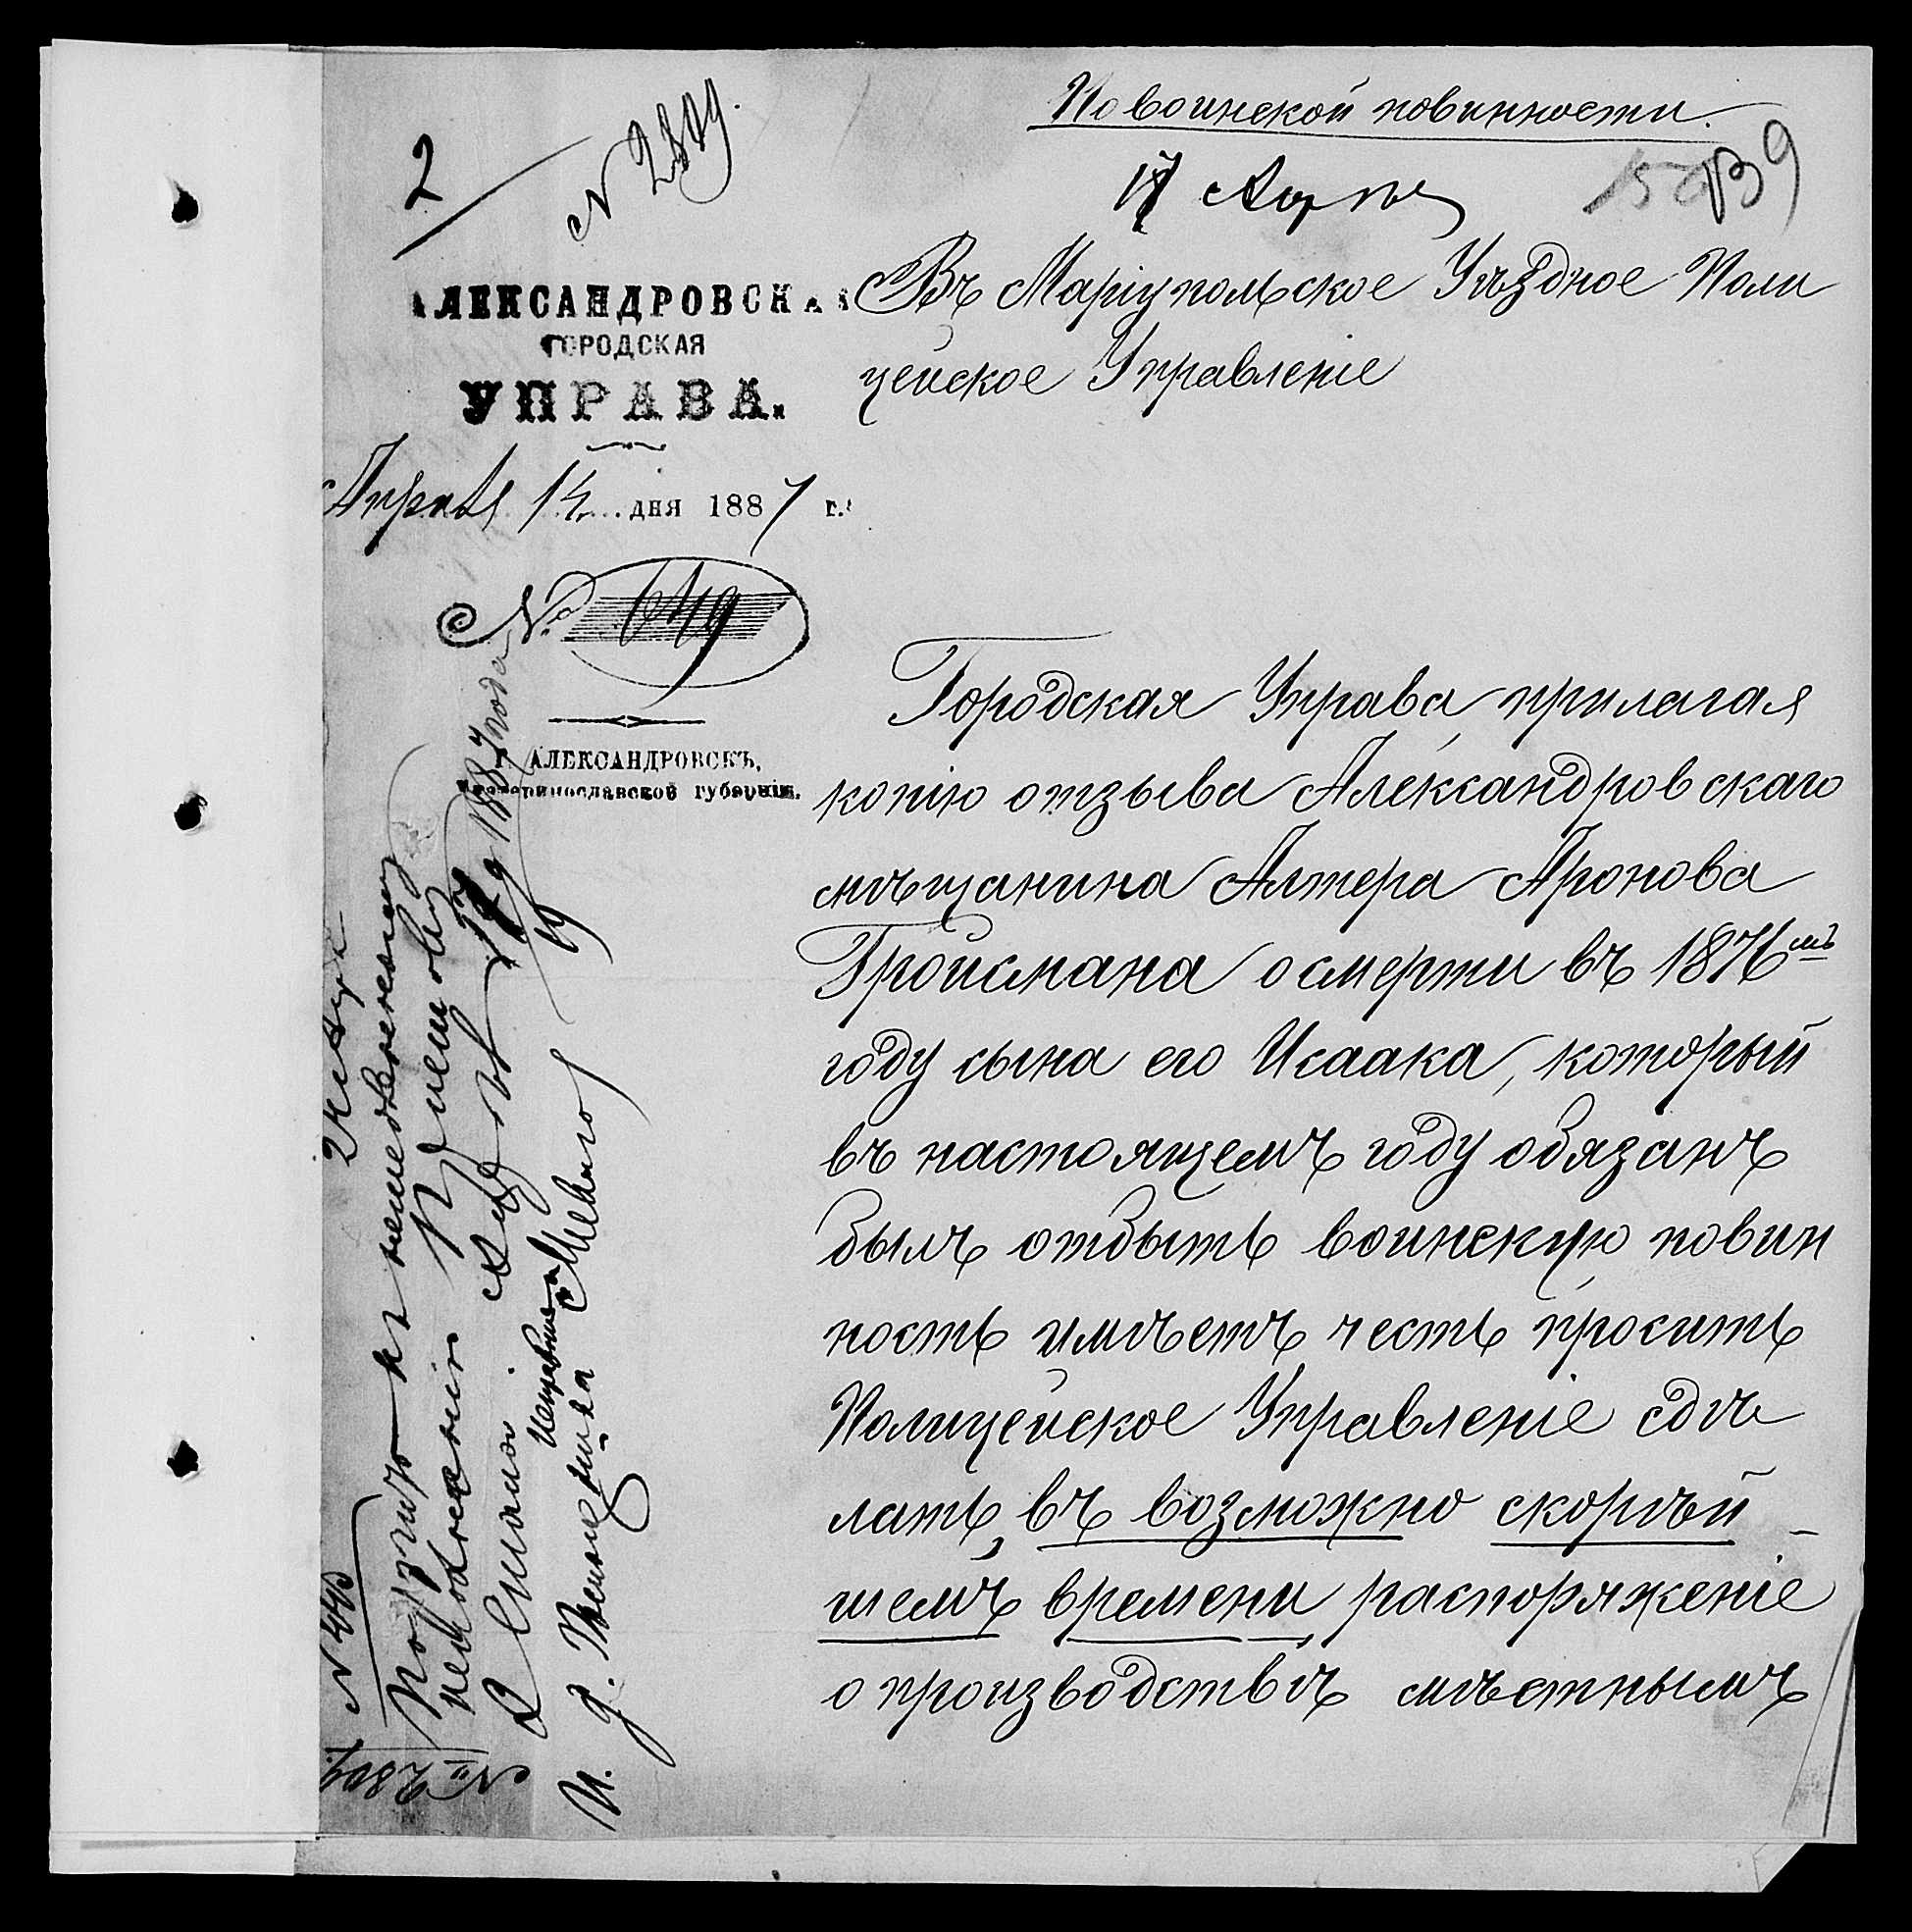 По воинской повинности.
2
№ 2809.
17 Апр
139
АЛЕКСАНДРОВСКАЯ
ГОРОДСКАЯ
УПРАВА.
Апрѣля 14 дня 1887 г.
№ 649
г. АЛЕКСАНДРОВСКЪ,
Екатеринославской губерніи.
Въ Маріупольское Уѣздное Поли
цейское Управленіе
Городская Управа, прилагая
копію отзыва Александровскаго
мѣщанина Алтера Аронова
Гройсмана о смерти въ 1876мъ
году сына его Исаака, который
въ настоящемъ году обязанъ
былъ отбыть воинскую повин
ность имѣетъ честь просить
Полицейское Управленіе сдѣ
лать, въ возможно скорѣй
шемъ времени, распоряженіе
о производствѣ мѣстнымъ
2 уч
къ
1887 года
И. д. Исправника
Помощника
№ 2809